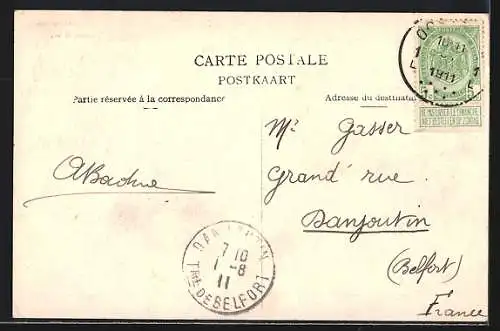 CARTE POSTALE
POSTKAART
Partie réservée à la correspondance
Adresse du destinat
1911
NE PAS LIVRER LE DIMANCHE
NIET BESTELLEN OP ZONDAG
Mr Gasser
Grand' rue.
Danjoutin
(Belfort)
France
DANJOUTIN
7 10
1 -8
11
TRE DE BELFORT